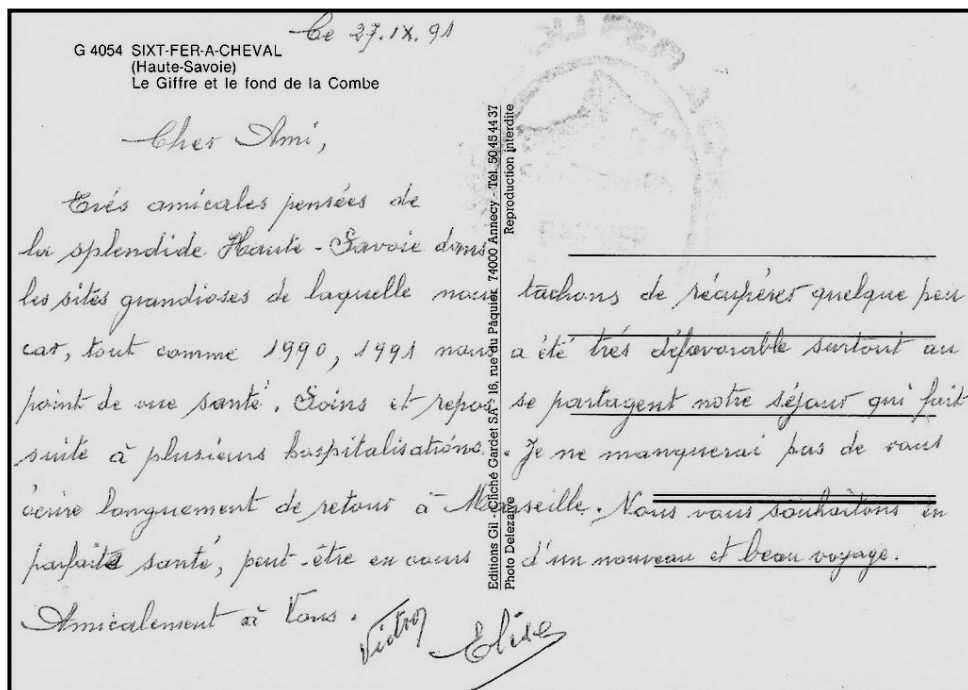 Ce 27.IX.91
G 4054 SIXT-FER-A-CHEVAL
(Haute-Savoie)
Le Giffre et le fond de la Combe
Cher Ami,
Très amicales pensées de
la splendide Haute-Savoie dans
les sites grandioses de laquelle nous tâchons de récupérer quelque peu
car, tout comme 1990, 1991 nous a été très défavorable surtout au
point de vue santé. Soins et repos se partagent notre séjour qui fait
suite à plusieurs hospitalisations. Je ne manquerai pas de vous
écrire longuement de retour à Marseille. Nous vous souhaitons en
parfaite santé, peut-être en cours d'un nouveau et beau voyage.
Amicalement à Vous.
Victor Elise
Editions Gil - Cliché Gardet SA - 16, rue du Pâquier 74000 Annecy - Tél. 50454437
Photo Delezaive
Reproduction interdite